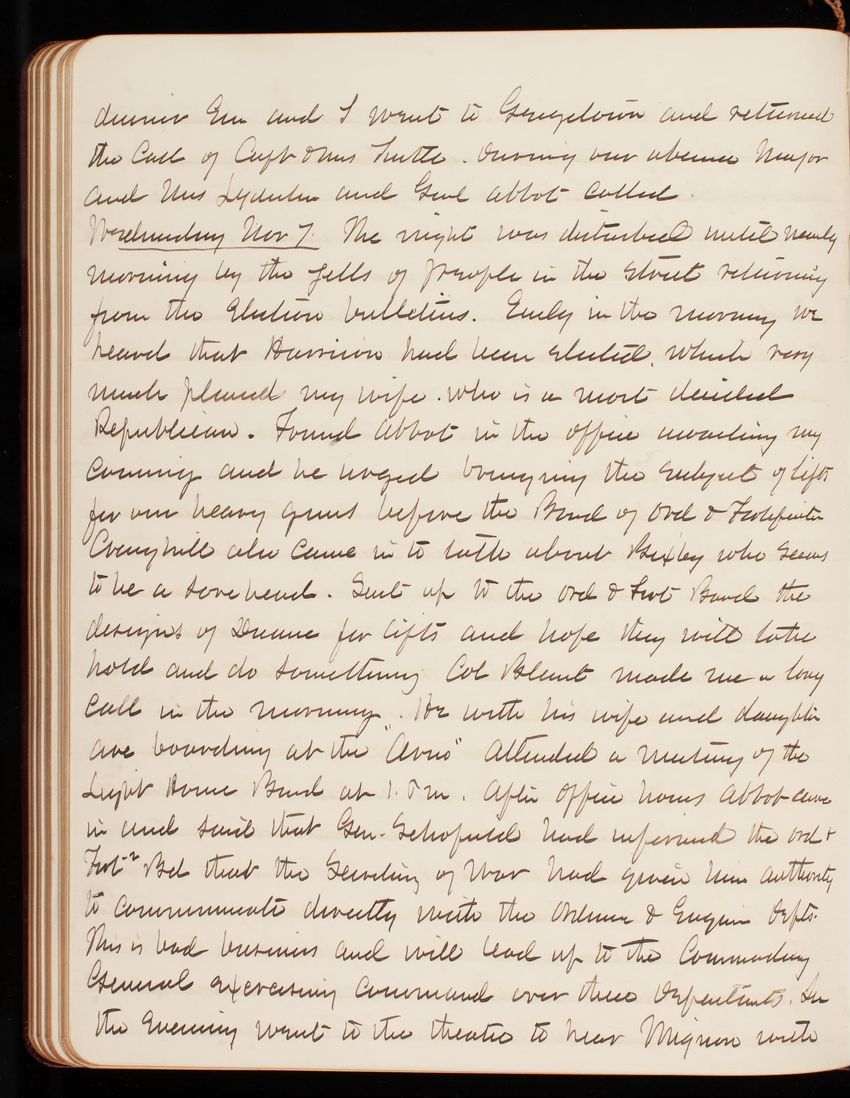 dinner Em and I went to Georgetown and returned
the Call of Capt & Mrs Tuttle. During our absence Major
and Mrs Lydecker and Genl Abbot called.
Wednesday Nov 7. The night was disturbed until nearly
morning by the yells of people in the street returning
from the Election bulletins. Early in the morning we
heard that Harrison had been elected, which very
much pleased my wife. who is a most decided
Republican. Found Abbot in the office awaiting my
coming and he urged bringing the subject of lifts
for our heavy guns before the Board of Ord & Fortification
Craighill also came in to talk about Bixby who seems
to be a sorehead. Sent up to the Ord & Fort Board the
designs of Duane for lifts and hope they will take
hold and do something Col Blunt made me a long
call in the morning. He with his wife and daughter
are boarding at the "Arno" Attended a meeting of the
Light House Board at 1. P.M. After office hours Abbot came
in and said that Gen. Schofield had informed the Ord &
Fort-n Bd that the Secretary of War had given him authority
to communicate directly with the Ordnance & Engineer Depts.
This is bad business and will lead up to the Commanding
General exercising command over these Departments. In
the Evening went to the theatre to hear Mignon with